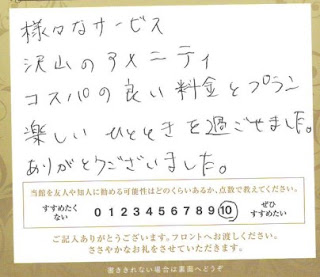 様々なサービス
沢山のアメニティ
コスパの良い料金とプラン
楽しいひとときを過ごせました。
ありがとうございました。
当館を友人や知人に勧める可能性はどのくらいあるか、点数で教えてください。
すすめたくない 0 1 2 3 4 5 6 7 8 9 10 ぜひすすめたい
ご記入ありがとうございます。フロントへお渡しください。
ささやかなお礼をさせていただきます。
書ききれない場合は裏面へどうぞ